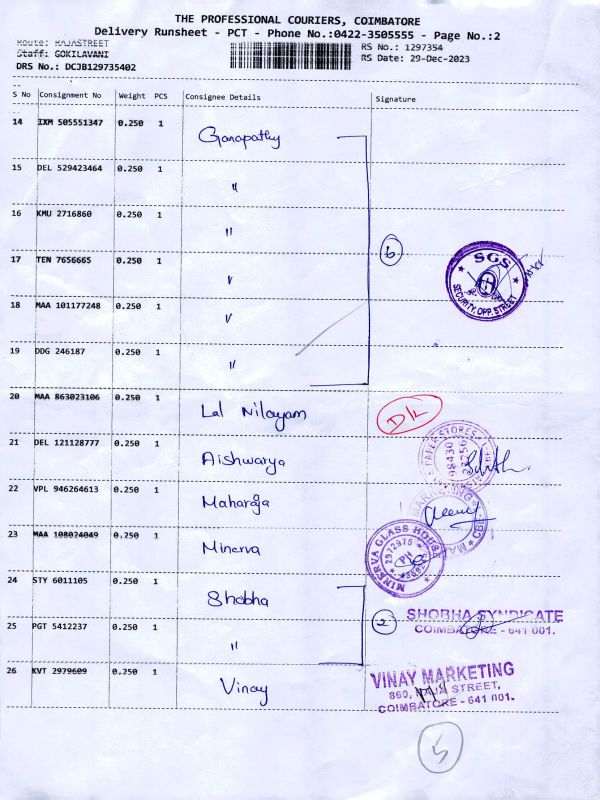 THE PROFESSIONAL COURIERS, COIMBATORE
Delivery Runsheet - PCT - Phone No.:0422-3505555 - Page No.:2
Route: RAJASTREET
Staff: GOKILAVANI
DRS No.: DCJB129735402
RS No.: 1297354
RS Date: 29-Dec-2023
S No Consignment No Weight PCS Consignee Details Signature
14 IXM 505551347 0.250 1 Ganapathy
15 DEL 529423464 0.250 1 "
16 KMU 2716860 0.250 1 "
17 TEN 7656665 0.250 1 "
6
SGS
SECURITY, OPP. STREET
18 MAA 101177248 0.250 1 "
19 DDG 246187 0.250 1 "
20 MAA 863023106 0.250 1 Lal Nilayam
D/L
21 DEL 121128777 0.250 1 Aishwarya
PAPER STORES
98430
22 VPL 946264613 0.250 1 Maharaja
MARKETING
23 MAA 108024049 0.250 1 Minerva
MINERVA GLASS HOUSE
2972975
PH
24 STY 6011105 0.250 1 Shobha
2
SHOBHA SYNDICATE
COIMBATORE - 641 001.
25 PGT 5412237 0.250 1 "
26 KVT 2979609 0.250 1 Vinay
VINAY MARKETING
860, RAJA STREET,
COIMBATORE - 641 001.
5